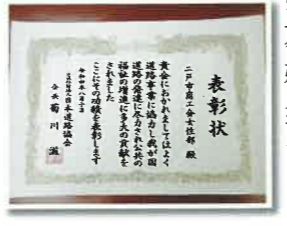 表彰状
二戸市商工会女性部 殿
貴会におかれましてはよく
道路事業に協力し我が国
道路の発達に尽力され公共の
福祉の増進に多大の貢献を
されました
ここにその功績を表彰します
令和四年八月十日
日本道路協会
会長 菊川 滋